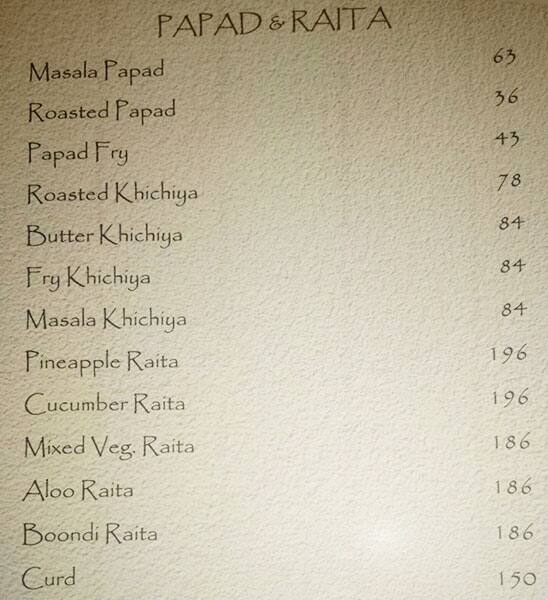 PAPAD & RAITA
Masala Papad 63
Roasted Papad 36
Papad Fry 43
Roasted Khichiya 78
Butter Khichiya 84
Fry Khichiya 84
Masala Khichiya 84
Pineapple Raita 196
Cucumber Raita 196
Mixed Veg. Raita 186
Aloo Raita 186
Boondi Raita 186
Curd 150